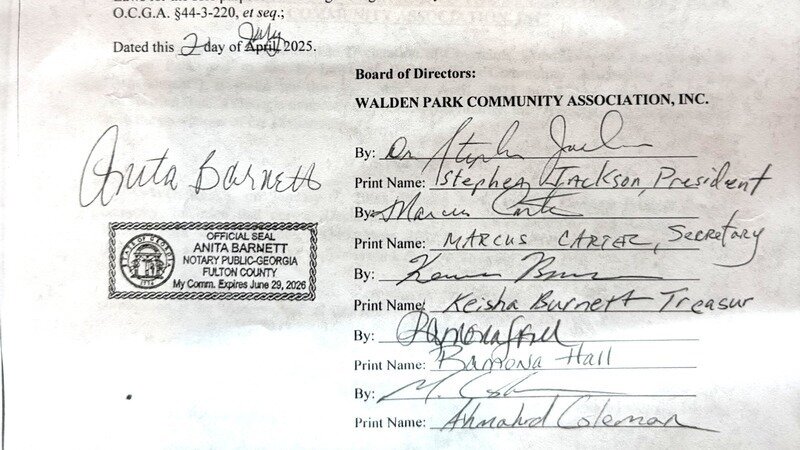 O.C.G.A. §44-3-220, et seq.;
Dated this 2 day of April July 2025.
Board of Directors:
WALDEN PARK COMMUNITY ASSOCIATION, INC.
By: Dr. Stephen Jackson
Print Name: Stephen Jackson President
Anita Barnett
By: Marcus Carter
Print Name: MARCUS CARTER, Secretary
OFFICIAL SEAL
ANITA BARNETT
NOTARY PUBLIC-GEORGIA
FULTON COUNTY
My Comm. Expires June 29, 2026
STATE OF GEORGIA
1776
By:
Print Name: Keisha Burnett Treasur
By: Ramona Hall
Print Name: Ramona Hall
By:
Print Name: Ahmahd Coleman